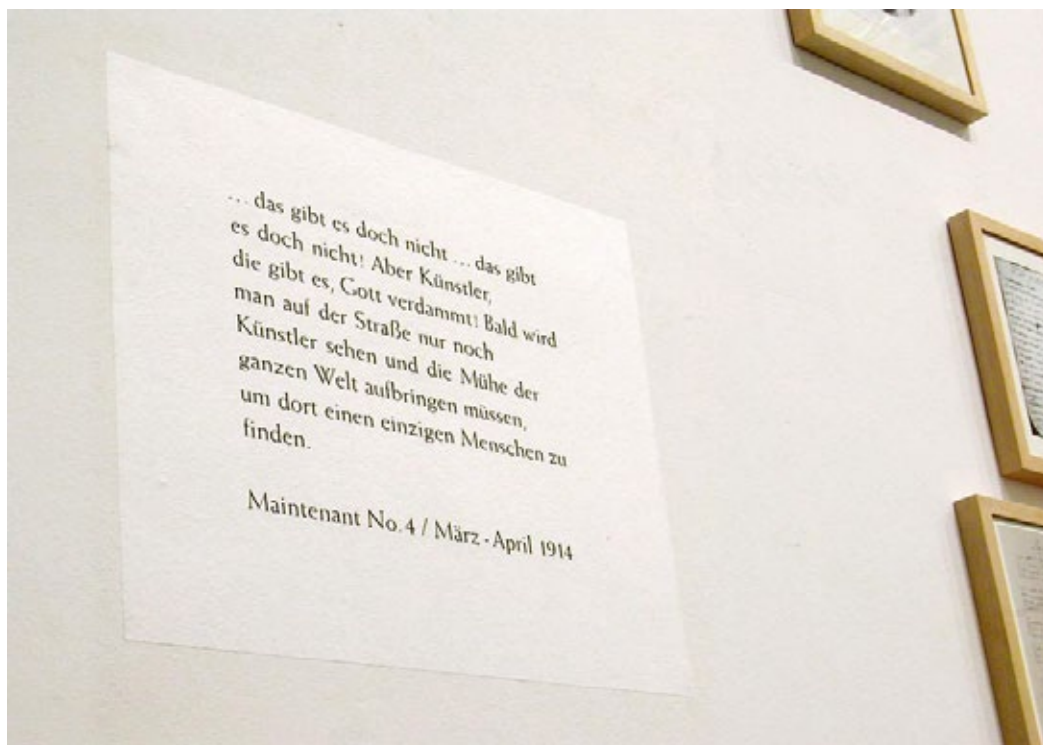 ... das gibt es doch nicht ... das gibt
es doch nicht! Aber Künstler,
die gibt es, Gott verdammt! Bald wird
man auf der Straße nur noch
Künstler sehen und die Mühe der
ganzen Welt aufbringen müssen,
um dort einen einzigen Menschen zu
finden.
Maintenant No. 4 / März - April 1914